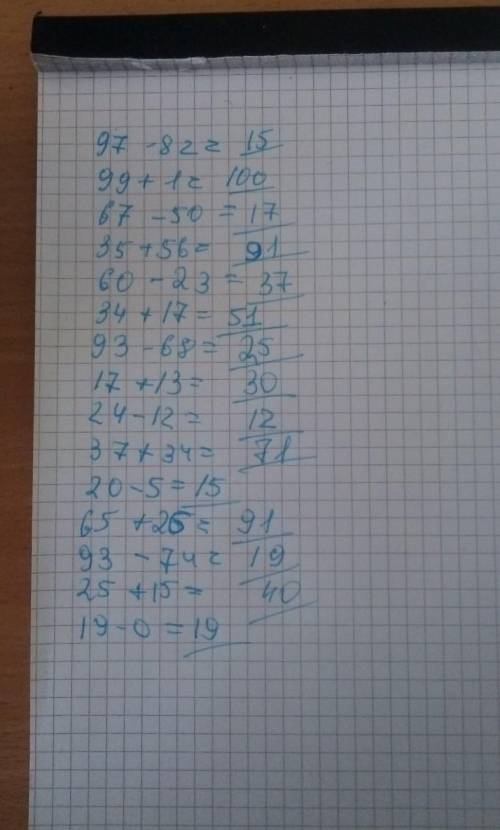 97 - 82 = 15
99 + 1 = 100
67 - 50 = 17
35 + 56 = 91
60 - 23 = 37
34 + 17 = 51
93 - 68 = 25
17 + 13 = 30
24 - 12 = 12
37 + 34 = 71
20 - 5 = 15
65 + 26 = 91
93 - 74 = 19
25 + 15 = 40
19 - 0 = 19